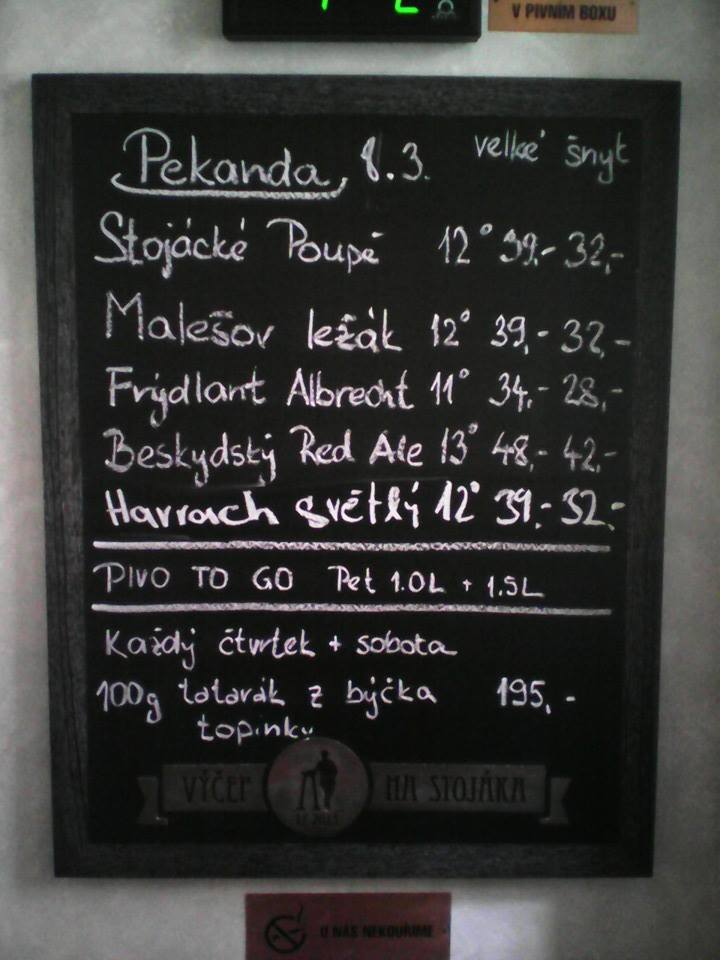 V PIVNÍM BOXU
Pekanda, 8.3. velké šnyt
Stojácké Poupě 12° 39,- 32,-
Malešov ležák 12° 39,- 32,-
Frýdlant Albrecht 11° 34,- 28,-
Beskydský Red Ale 13° 48,- 42,-
Harrach světlý 12° 39,- 32,-
PIVO TO GO Pet 1.0L + 1.5L
Každý čtvrtek + sobota
100g tatarák z býčka 195,-
topinky
VÝČEP NA STOJÁKA
U NÁS NEKOUŘÍME